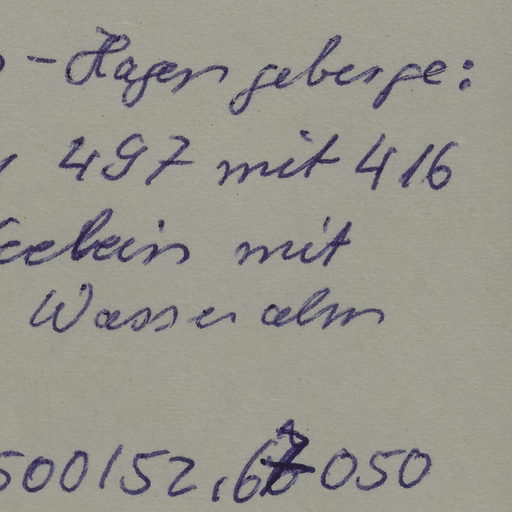 - Hagengebirge:
497 mit 416
mit
Wasseralm
500152,67050